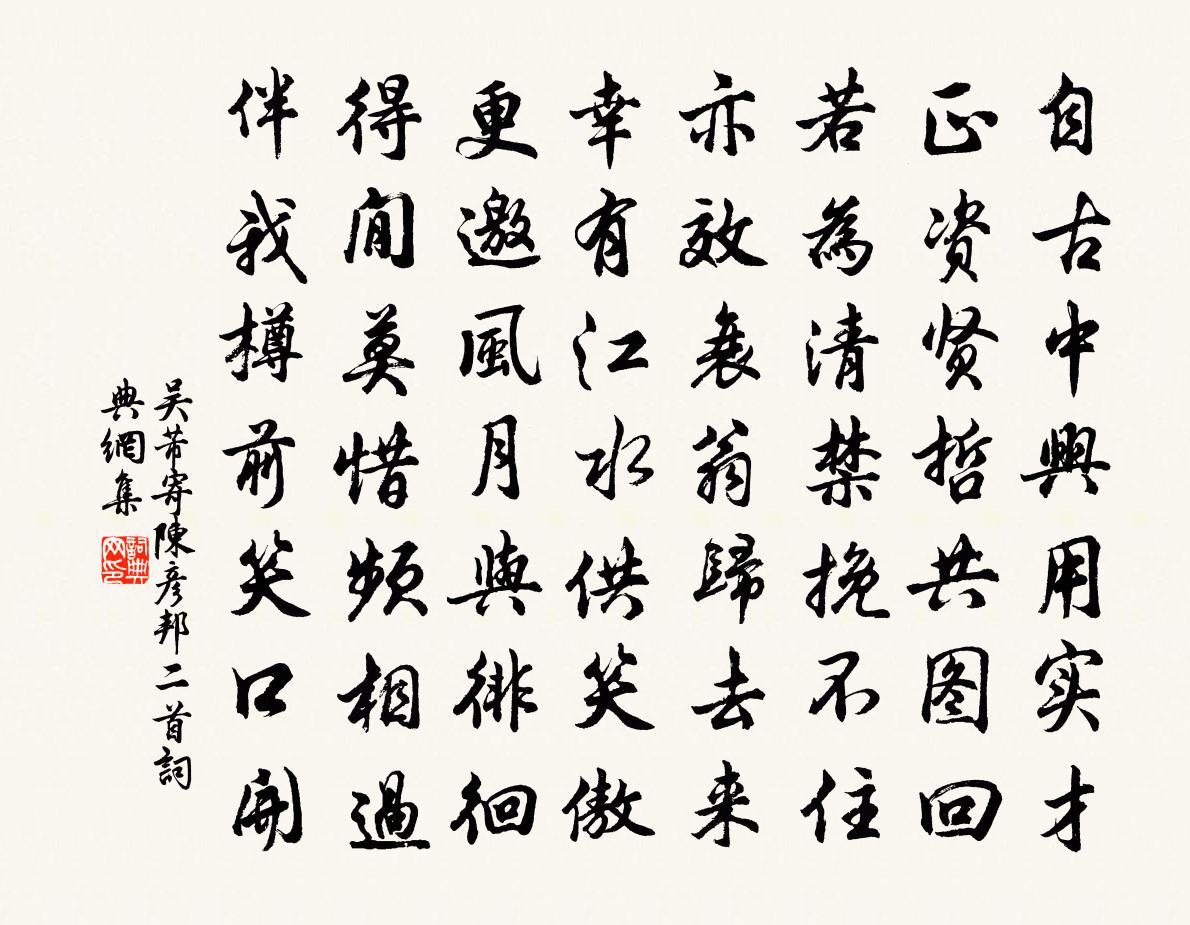 自古中興用实才
正资贤哲共图回
若為清禁挽不住
亦效衰翁歸去来
幸有江水供笑傲
更邀風月與徘徊
得閒莫惜頻相過
伴我樽前笑口開
吴芾寄陳彦邦二首詞
典網集
詞典網印